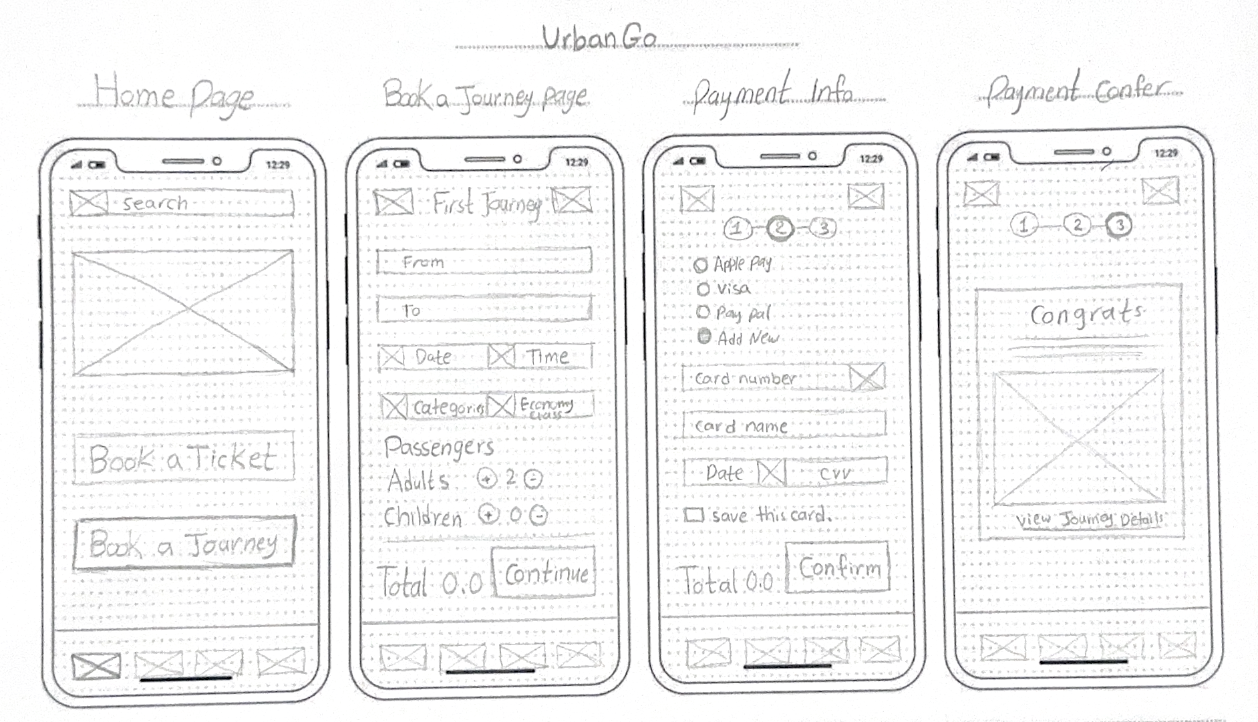 UrbanGo
Home Page
Book a Journey page
Payment Info
Payment Confer
12:29
search
Book a Ticket
Book a Journey
12:29
First Journey
From
To
Date
Time
Categorie
Economy
class
Passengers
Adults + 2 -
Children + 0 -
Total 0.0
Continue
12:29
1 2 3
Apple Pay
Visa
Pay pal
Add New
Card number
Card name
Date
CVV
save this card.
Total 0.0
Confirm
12:29
1 2 3
Congrats
View Journey Details